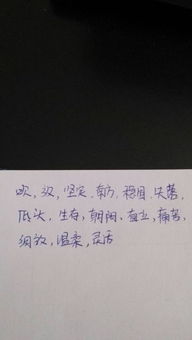 吹，汉，坚定，东方，稳固，失落，
低头，生存，朝阳，直立，痛苦，
细致，温柔，灵活